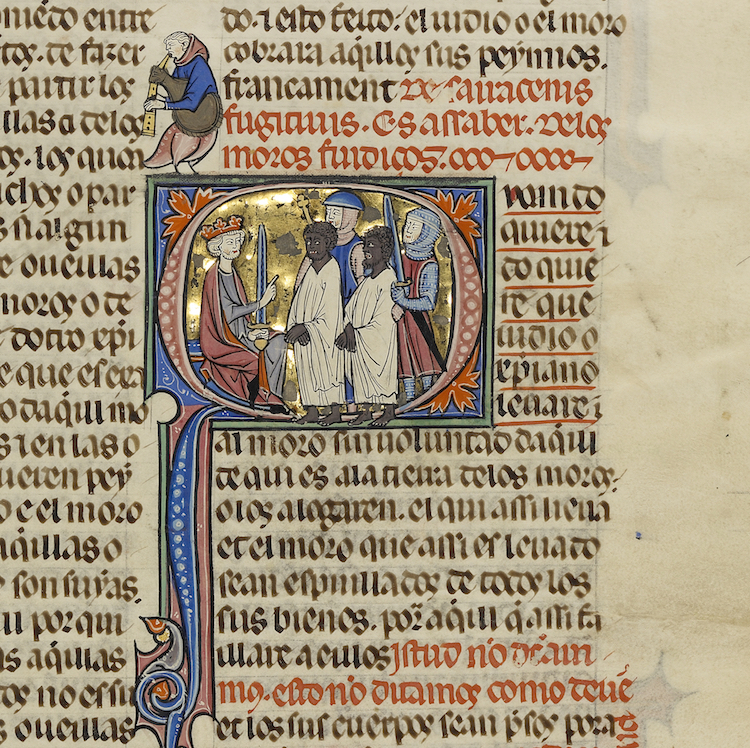 miedo entre
tos. de fazer
partir los
llas a delos
os. los quou
o par
s si algun
e ouellas
moros o de
dotro xpi
e que eseer
o daqui mo
s i en las o
ueren pey
o e el moro
aquillas o
son suyas.
ll por qui
as aquillas
tos no essu
s ouellas
do. i esto feito. el iudio o el moro
cobrara aqillos sus peynnos.
francament De sarracenis
fugitiuis. Es assaber. Delos
moros fuidiços.
uando
quiere i
do quie
re que
iudio o
xpiano
leuare i
al moro sin uoluntad daqui
de qui es ala tierra delos moros.
o los alogaren. el qui assi lieua
et el moro que assi es leuado
sean espuillados de todos los
sus bienes. por aquill q assi fa
illare a eillos Istud no dam
mo. esto no diuamos como deue
et los sus cuerpos sean psos pora